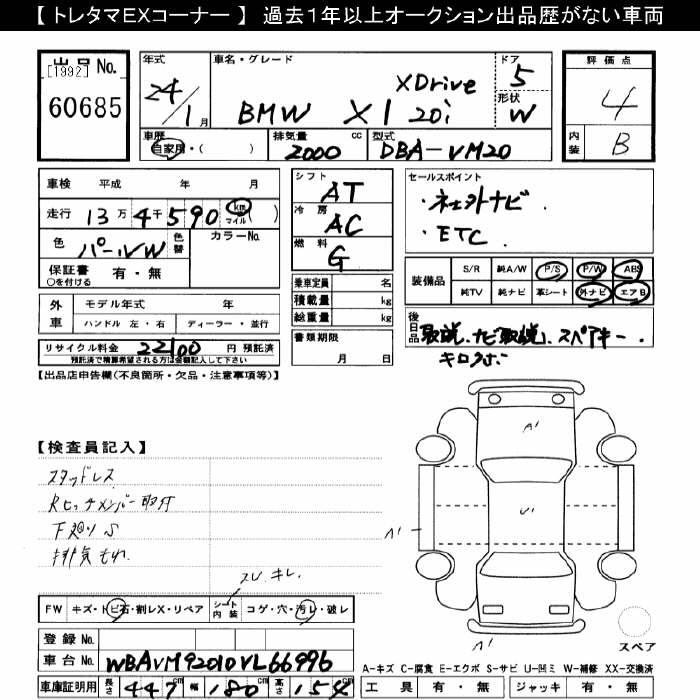 【 トレタマEXコーナー 】 過去1年以上オークション出品歴がない車両
出品No.
[1992]
60685
年式
24/1月
車名・グレード
BMW X1 XDrive 20i
ドア
5
形状
W
評価点
4
内装
B
車歴
自家用・( )
排気量 cc
2000
型式
DBA-VM20
車検 平成 年 月
走行 13万4千590 km マイル ( )
色 パールW 色替 カラーNo.
保証書 有・無
○を付ける
シフト
AT
冷房
AC
燃料
G
セールスポイント
・社外ナビ
・ETC
装備品
S/R 純A/W P/S P/W ABS
純TV 純ナビ 革シート 外ナビ エアB
外車
モデル年式 年
ハンドル 左・右 ディーラー・並行
乗車定員 名
積載量 kg
総重量 kg
書類期限
月 日
後日品
取説、ナビ取説、スペアキー、
リサイクル料金 22100 円 預託済
預託済で精算希望される方は金額記入して下さい
【出品店申告欄(不良箇所・欠品・注意事項等)】
【検査員記入】
スタッドレス
Rヒッチメンバー取付
下廻りS
排気もれ
スレ キレ
A1
U1
A1
A1
FW キズ・トビ石・割レX・リペア シート内装 コゲ・穴・汚レ・破レ
登録No.
車台No. WBAVM92010VL66996
車庫証明用 長さ 447cm 幅 180cm 高さ 154cm
スペア
A-キズ C-腐食 E-エクボ S-サビ U-凹ミ W-補修 XX-交換済
工具 有・無 ジャッキ 有・無